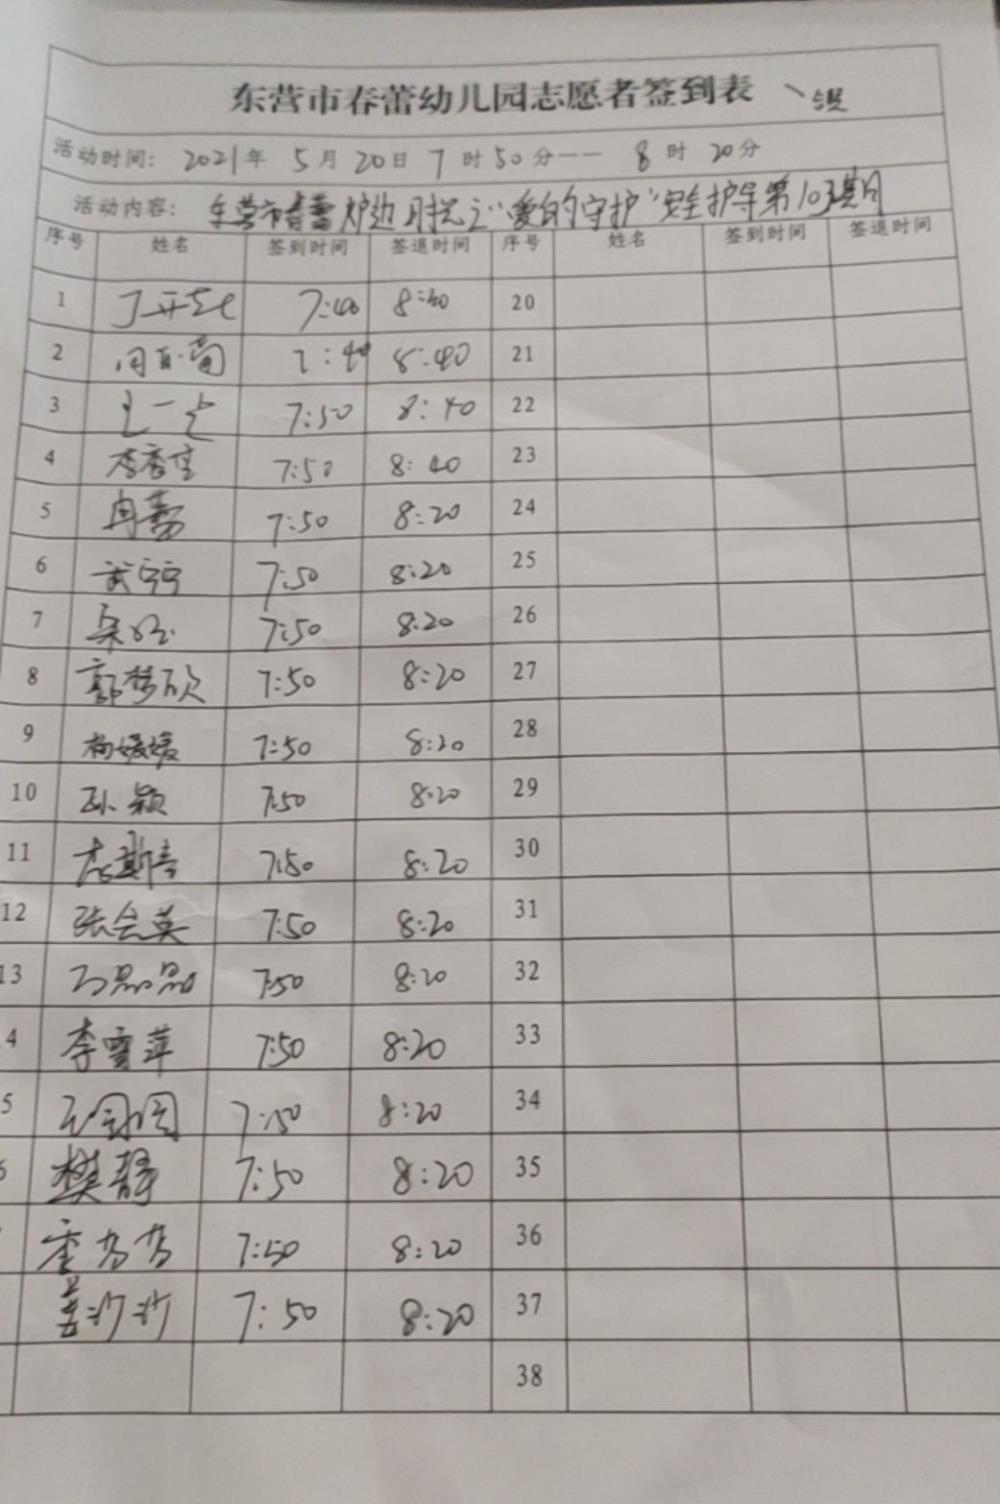 东营市春蕾幼儿园志愿者签到表
活动时间: 2021年 5月 20日 7时 50分—— 8时 20分
活动内容: 东营市春蕾 之"爱的守护"安全护导第103期
序号 姓名 签到时间 签退时间 序号 姓名 签到时间 签退时间
1 7:40 8:40 20
2 7:40 8:40 21
3 王一 7:50 8:40 22
4 李春雪 7:50 8:40 23
5 7:50 8:20 24
6 武宁宁 7:50 8:20 25
7 7:50 8:20 26
8 郭梦欣 7:50 8:20 27
9 杨媛媛 7:50 8:20 28
10 孙颖 7:50 8:20 29
11 7:50 8:20 30
12 张会英 7:50 8:20 31
13 晶晶 7:50 8:20 32
4 李雪萍 7:50 8:20 33
5 7:50 8:20 34
6 樊静 7:50 8:20 35
李芳芳 7:50 8:20 36
姜沙沙 7:50 8:20 37
38